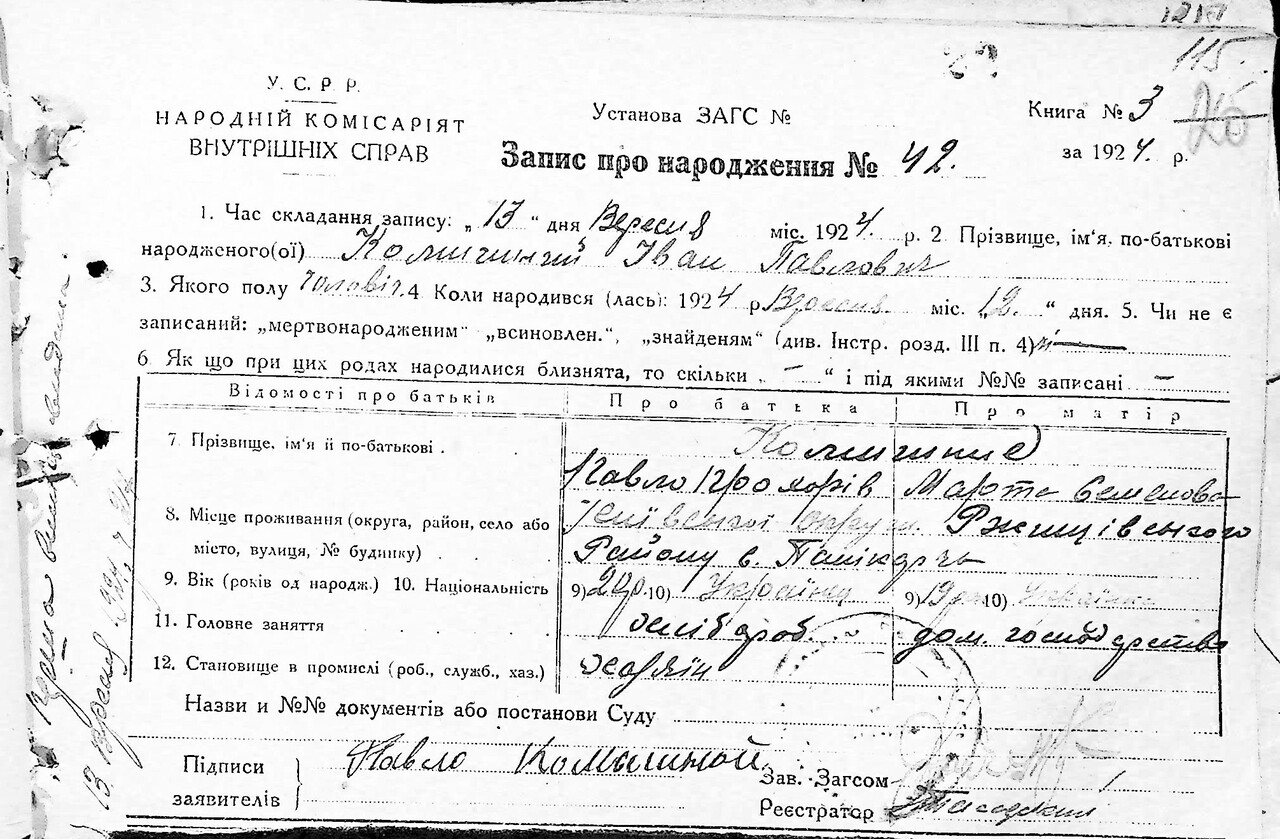 115
26
У. С. Р. Р.
НАРОДНІЙ КОМІСАРІЯТ
ВНУТРІШНІХ СПРАВ
Установа ЗАГС №
Книга № 3
за 1924. р.
Запис про народження № 42.
1. Час складання запису: „ 13 “ дня Вересня міс. 1924. р. 2. Прізвище, ім'я, по-батькові
народженого(ої) Іван Павлович
3. Якого полу чоловіч. 4 Коли народився (лась): 1924 р Вересня міс. „12.“ дня. 5. Чи не є
записаний: „мертвонародженим“ „всиновлен.“, „знайденям“ (див. Інстр. розд. III п. 4)
6 Як що при цих родах народилися близнята, то скільки „ – “ і під якими №№ записані –
Відомості про батьків Про батька Про матір
7. Прізвище, ім'я й по-батькові .
Павло Прохорів Марта Семенова
8. Місце проживання (округа, район, село або Київської округи Ржищівського
місто, вулиця, № будинку) . Району с.
9. Вік (років од народж.) 10. Національність 9) 10) Українец 9) 19р. 10) Українка
11. Головне заняття . . . хліб ороб. дом. господарство
12. Становище в промислі (роб., служб., хаз.) хазяїн
Назви и №№ документів або постанови Суду
Підписи
заявителів
Павло
Зав. Загсом
Реєстратор
13 Вересня